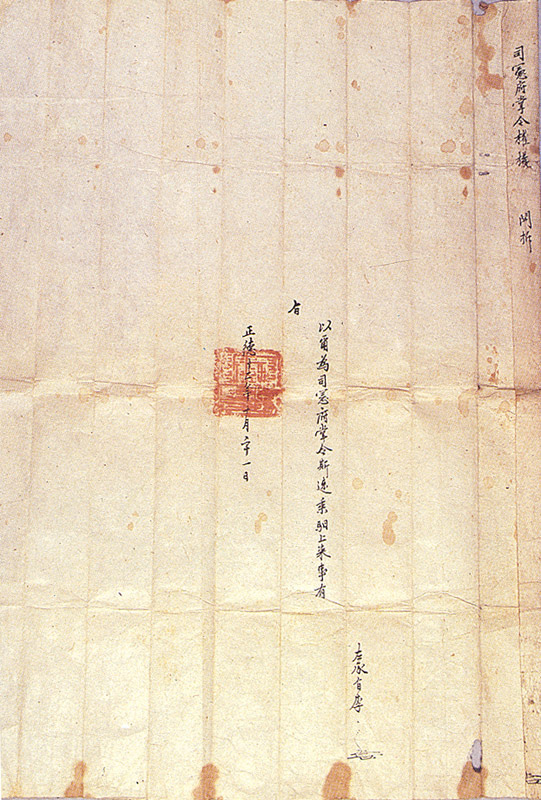 司憲府掌令權 開拆
左承旨李
以爾為司憲府掌令斯速乘馹上來事有
旨
正德十六年十月二十一日